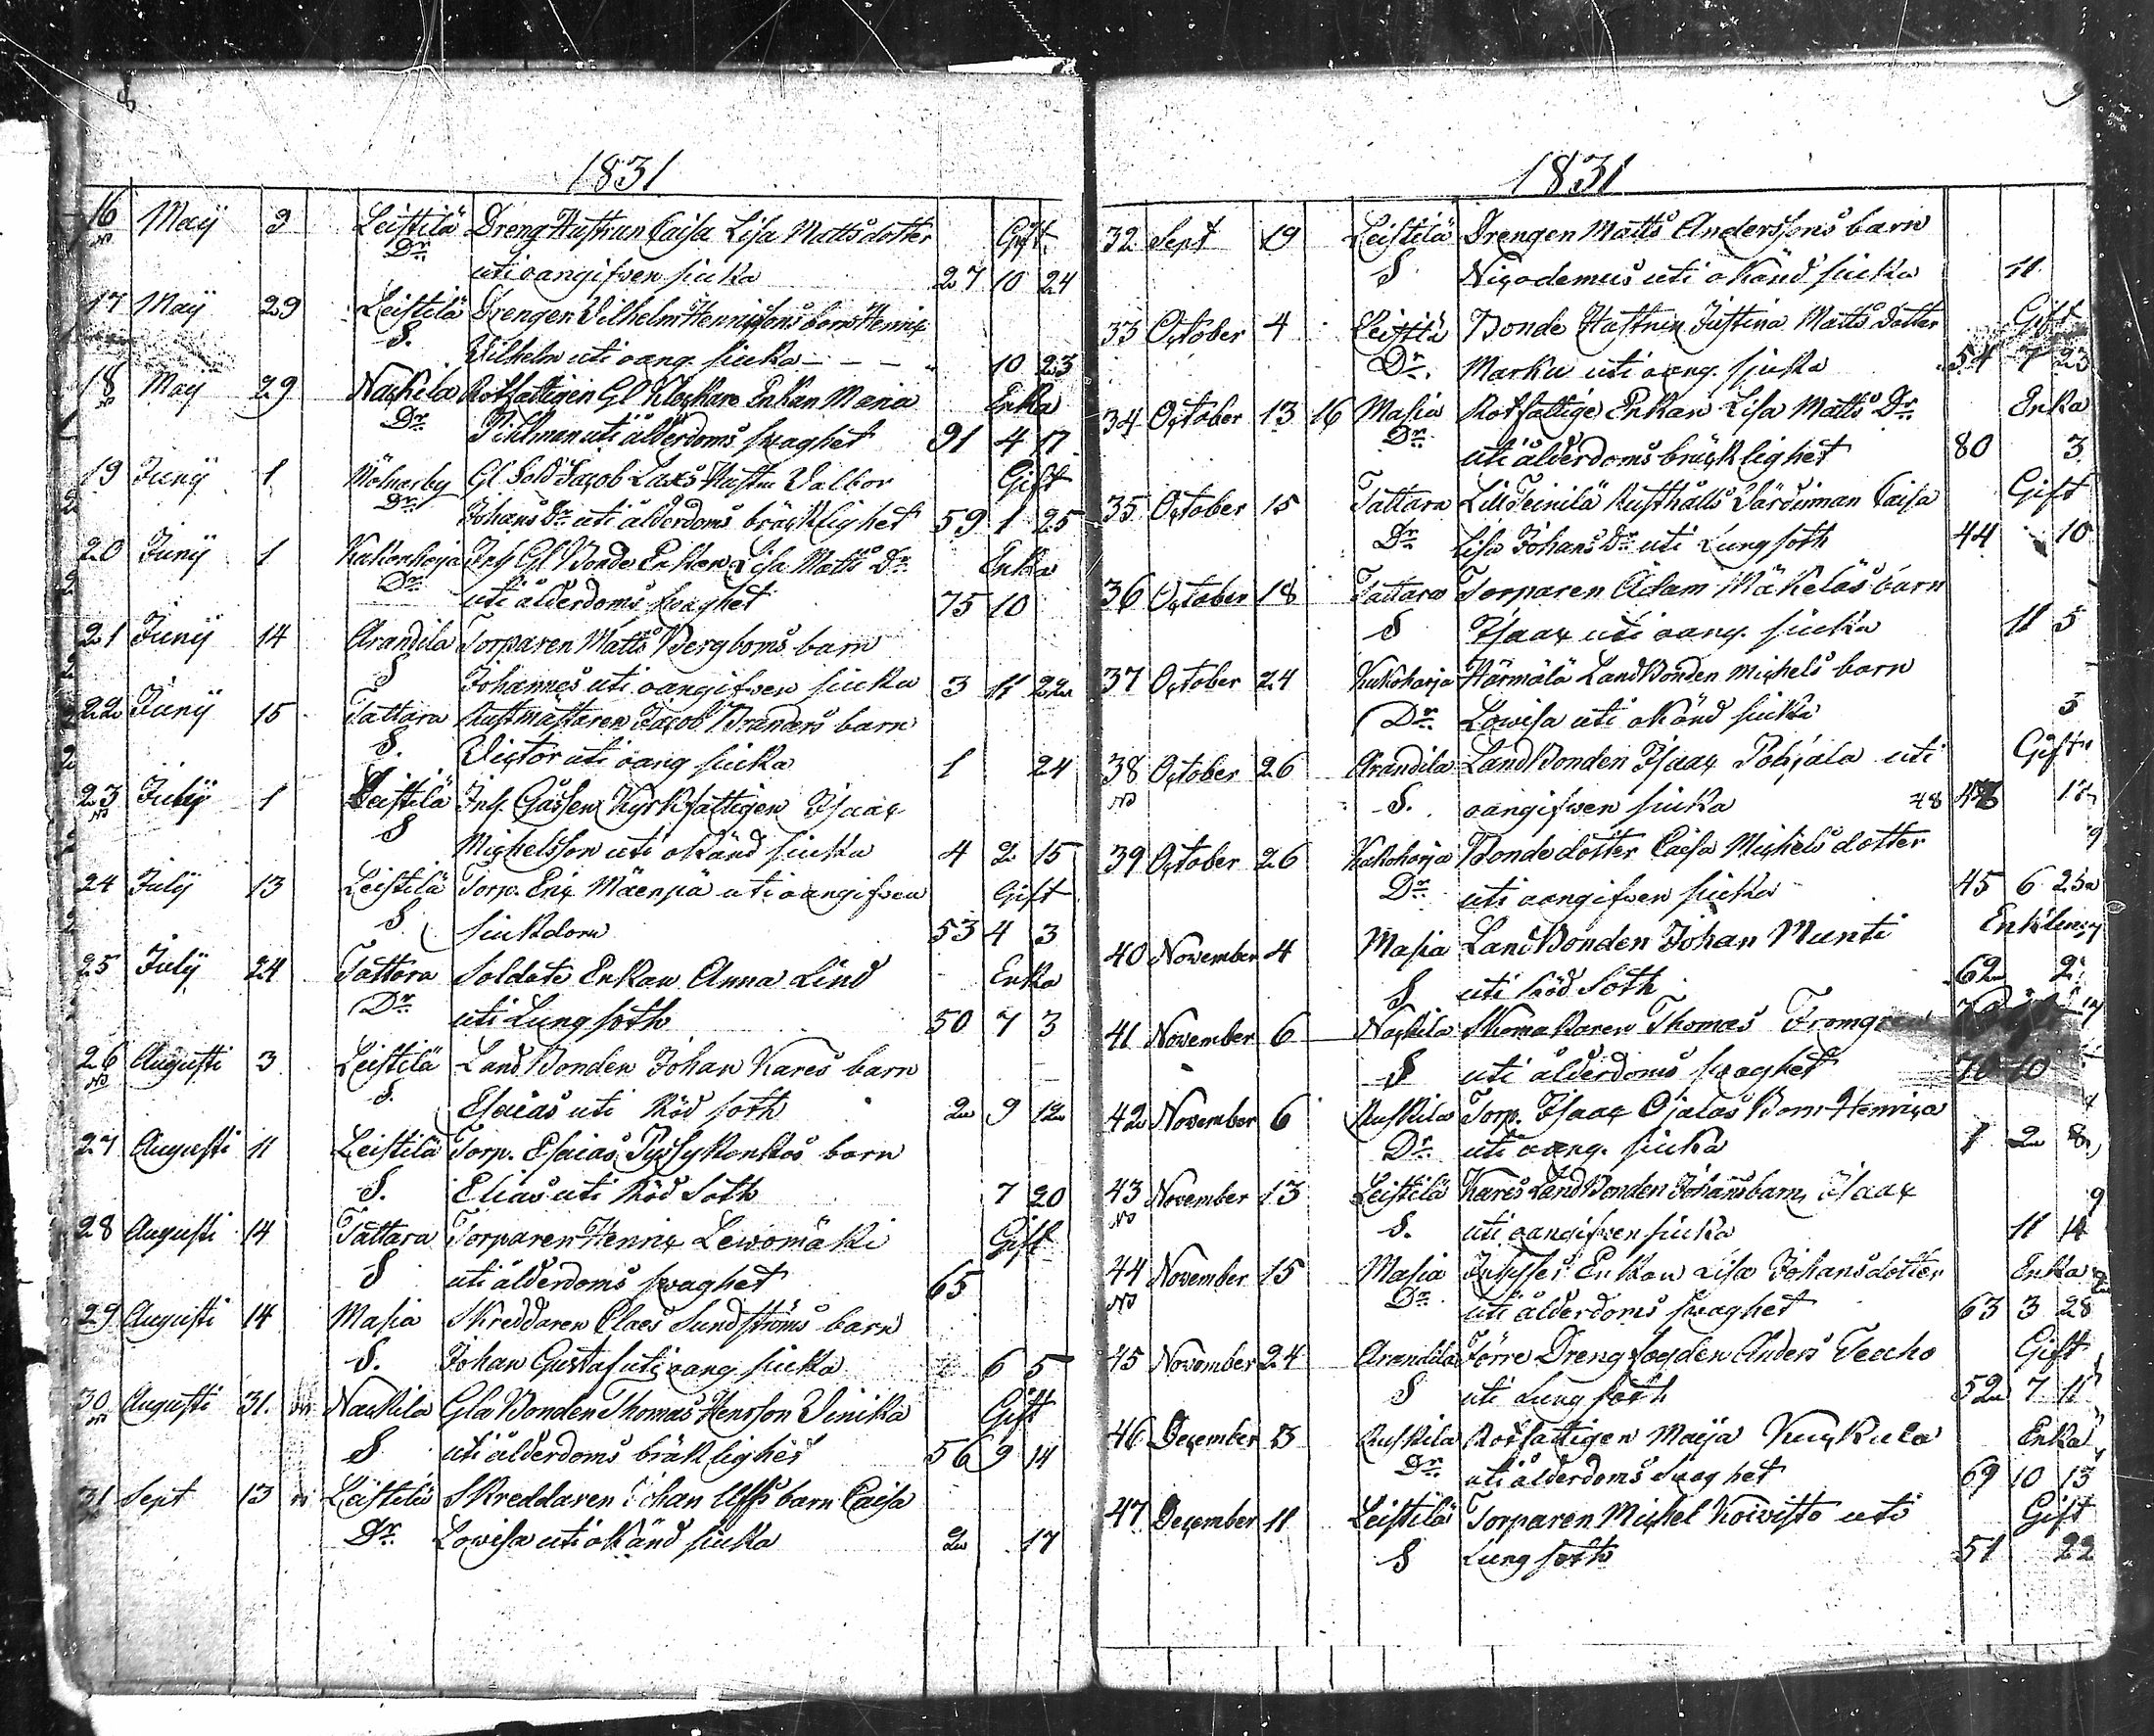 8
1831
16 Maÿ 3 Leistilä Dreng Hustrun Caisa Lisa Mattsdotter Gift
No Dr uti oangifven siuka 27 10 24
17 Maÿ 29 Leistilä Drengen Vilhelm Henrikssons barn Henric
S. Vilhelm uti oang. siuka 10 23
18 Maÿ 29 Nackila Rotfattigen Gl Klockare Enkan Maria Enka
Dr Pihlman uti ålderdoms svaghet 91 4 17
19 Junÿ 1 Gl Sold Jacob Laxs Hustru Valbor Gift
Dr Johans Dr uti ålderdoms bräcklighet 59 1 25
20 Junÿ 1 Kukonharja Inh Gl Bonde Enkan Lisa Matts Dr Enka
Dr uti ålderdoms svaghet 75 10
21 Junÿ 14 Arandila Torparen Matts Bergboms barn
S Johannes uti oangifven siuka 3 11 22
22 Junÿ 15 Tattara Rustmästaren Jacob Branders barn
S. Victor uti oang siuka 1 24
23 Julÿ 1 Leistilä Inh. Gossen Kyrkfattigen Isaac
No S Michelsson uti okänd siuka 4 2 15
24 Julÿ 13 Leistilä Torp. Eric Mäenpä uti oangifven Gift
S siukdom 53 4 3
25 Julÿ 24 Tattara Soldate Enkan Anna Lind Enka
Dr uti Lungsoth 50 7 3
26 Augusti 3 Leistilä LandBonden Johan Kares barn
No S. Esaias uti Röd soth 2 9 12
27 Augusti 11 Leistilä Torp. Esaias barn
S. Elias uti Röd Soth 7 20
28 Augusti 14 Tattara Torparen Henric Lewomäki Gift
S uti ålderdoms svaghet 65
29 Augusti 14 Masia Skreddaren Claes Sundströms barn
S. Johan Gustaf uti oang siuka 6 5
30 Augusti 31. Nackila Gla Bonden Thomas Hensson Vinika Gift
No S uti ålderdoms bräklighet 56 9 14
31 Sept 13 Leistilä Skreddaren Johan barn Caisa
Dr Lovisa uti okänd siuka 2 17
9
1831
32 Sept 19 Leistilä Drengen Matts Anderssons barn
S Nicodemus uti okänd siuka 11
33 October 4 Leistilä Bonde Hustrun Justina Matts dotter Gift
Dr. Marku uti oang. siuka 54 7 23
34 October 13 16 Masia Rotfattige Enkan Lisa Matts Dr Enka
Dr uti ålderdoms bräcklighet 80 3
35 October 15 Tattara Lill Teinilä Rusthålls Värdinnan Caisa Gift
Dr Lisa Johans Dr uti Lungsoth 44 10
36 October 18 Tattara Torparen Adam Mäkeläs barn
S Isaac uti oang. siuka 11 5
37 October 24 Kukoharja Härmälä LandBonden Michels barn
Dr Lowisa uti okänd siuka 5
38 October 26 Arandila LandBonden Isaac Pohjala uti Gift
No S. oangifven siuka 48 17
39 October 26 Kukoharja Bonde dotter Caisa Michels dotter
Dr uti oangifven siuka 45 6 25
40 November 4 Masia LandBonden Johan Munti Enkling
S uti Röd Soth 62 2
41 November 6 Nackila Skomakaren Thomas
S uti ålderdoms svaghet 70 10
42 November 6 Ruskila Torp. Isaac Ojalas Barn Henrica
Dr uti oang. siuka 1 2 8
43 November 13 Leistilä Kares LandBonden Johans barn Isaac
No S. uti oangifven siuka 11 14
44 November 15 Masia Inhyses Enkan Lisa Johansdotter Enka
No Dr uti ålderdoms svaghet 63 3 28
45 November 24 Arandila Förre Drengfogden Anders Gift
S uti Lungsoth 52 7 11
46 December 3 Ruskila Rotfattigen Maija Enka
Dr uti ålderdoms Svaghet 69 10 13
47 December 11 Leistilä Torparen Michel Koivisto uti Gift
S Lungsoth 51 22